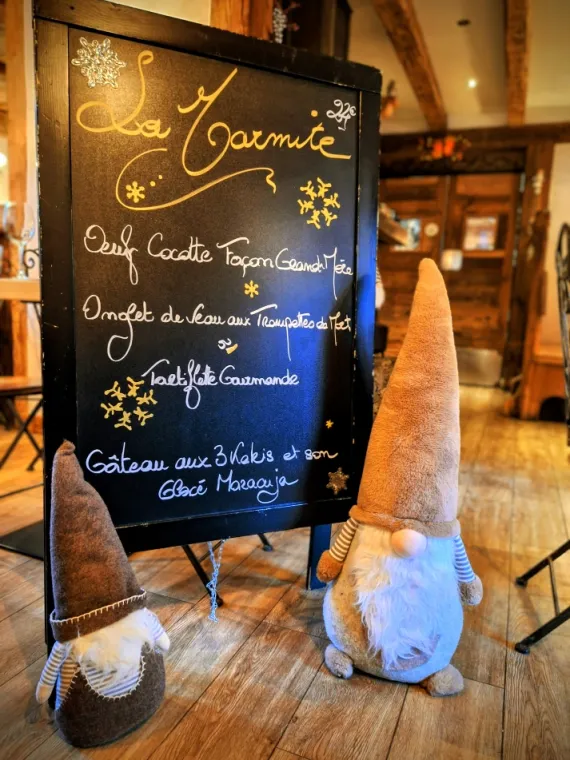 La Marmite
24€
Oeuf Cocotte Façon Grand-Mère
Onglet de Veau aux Trompettes de Mort
ou
Tartiflette Gourmande
Gâteau aux 3 Kakis et son
Glacé Maracuja